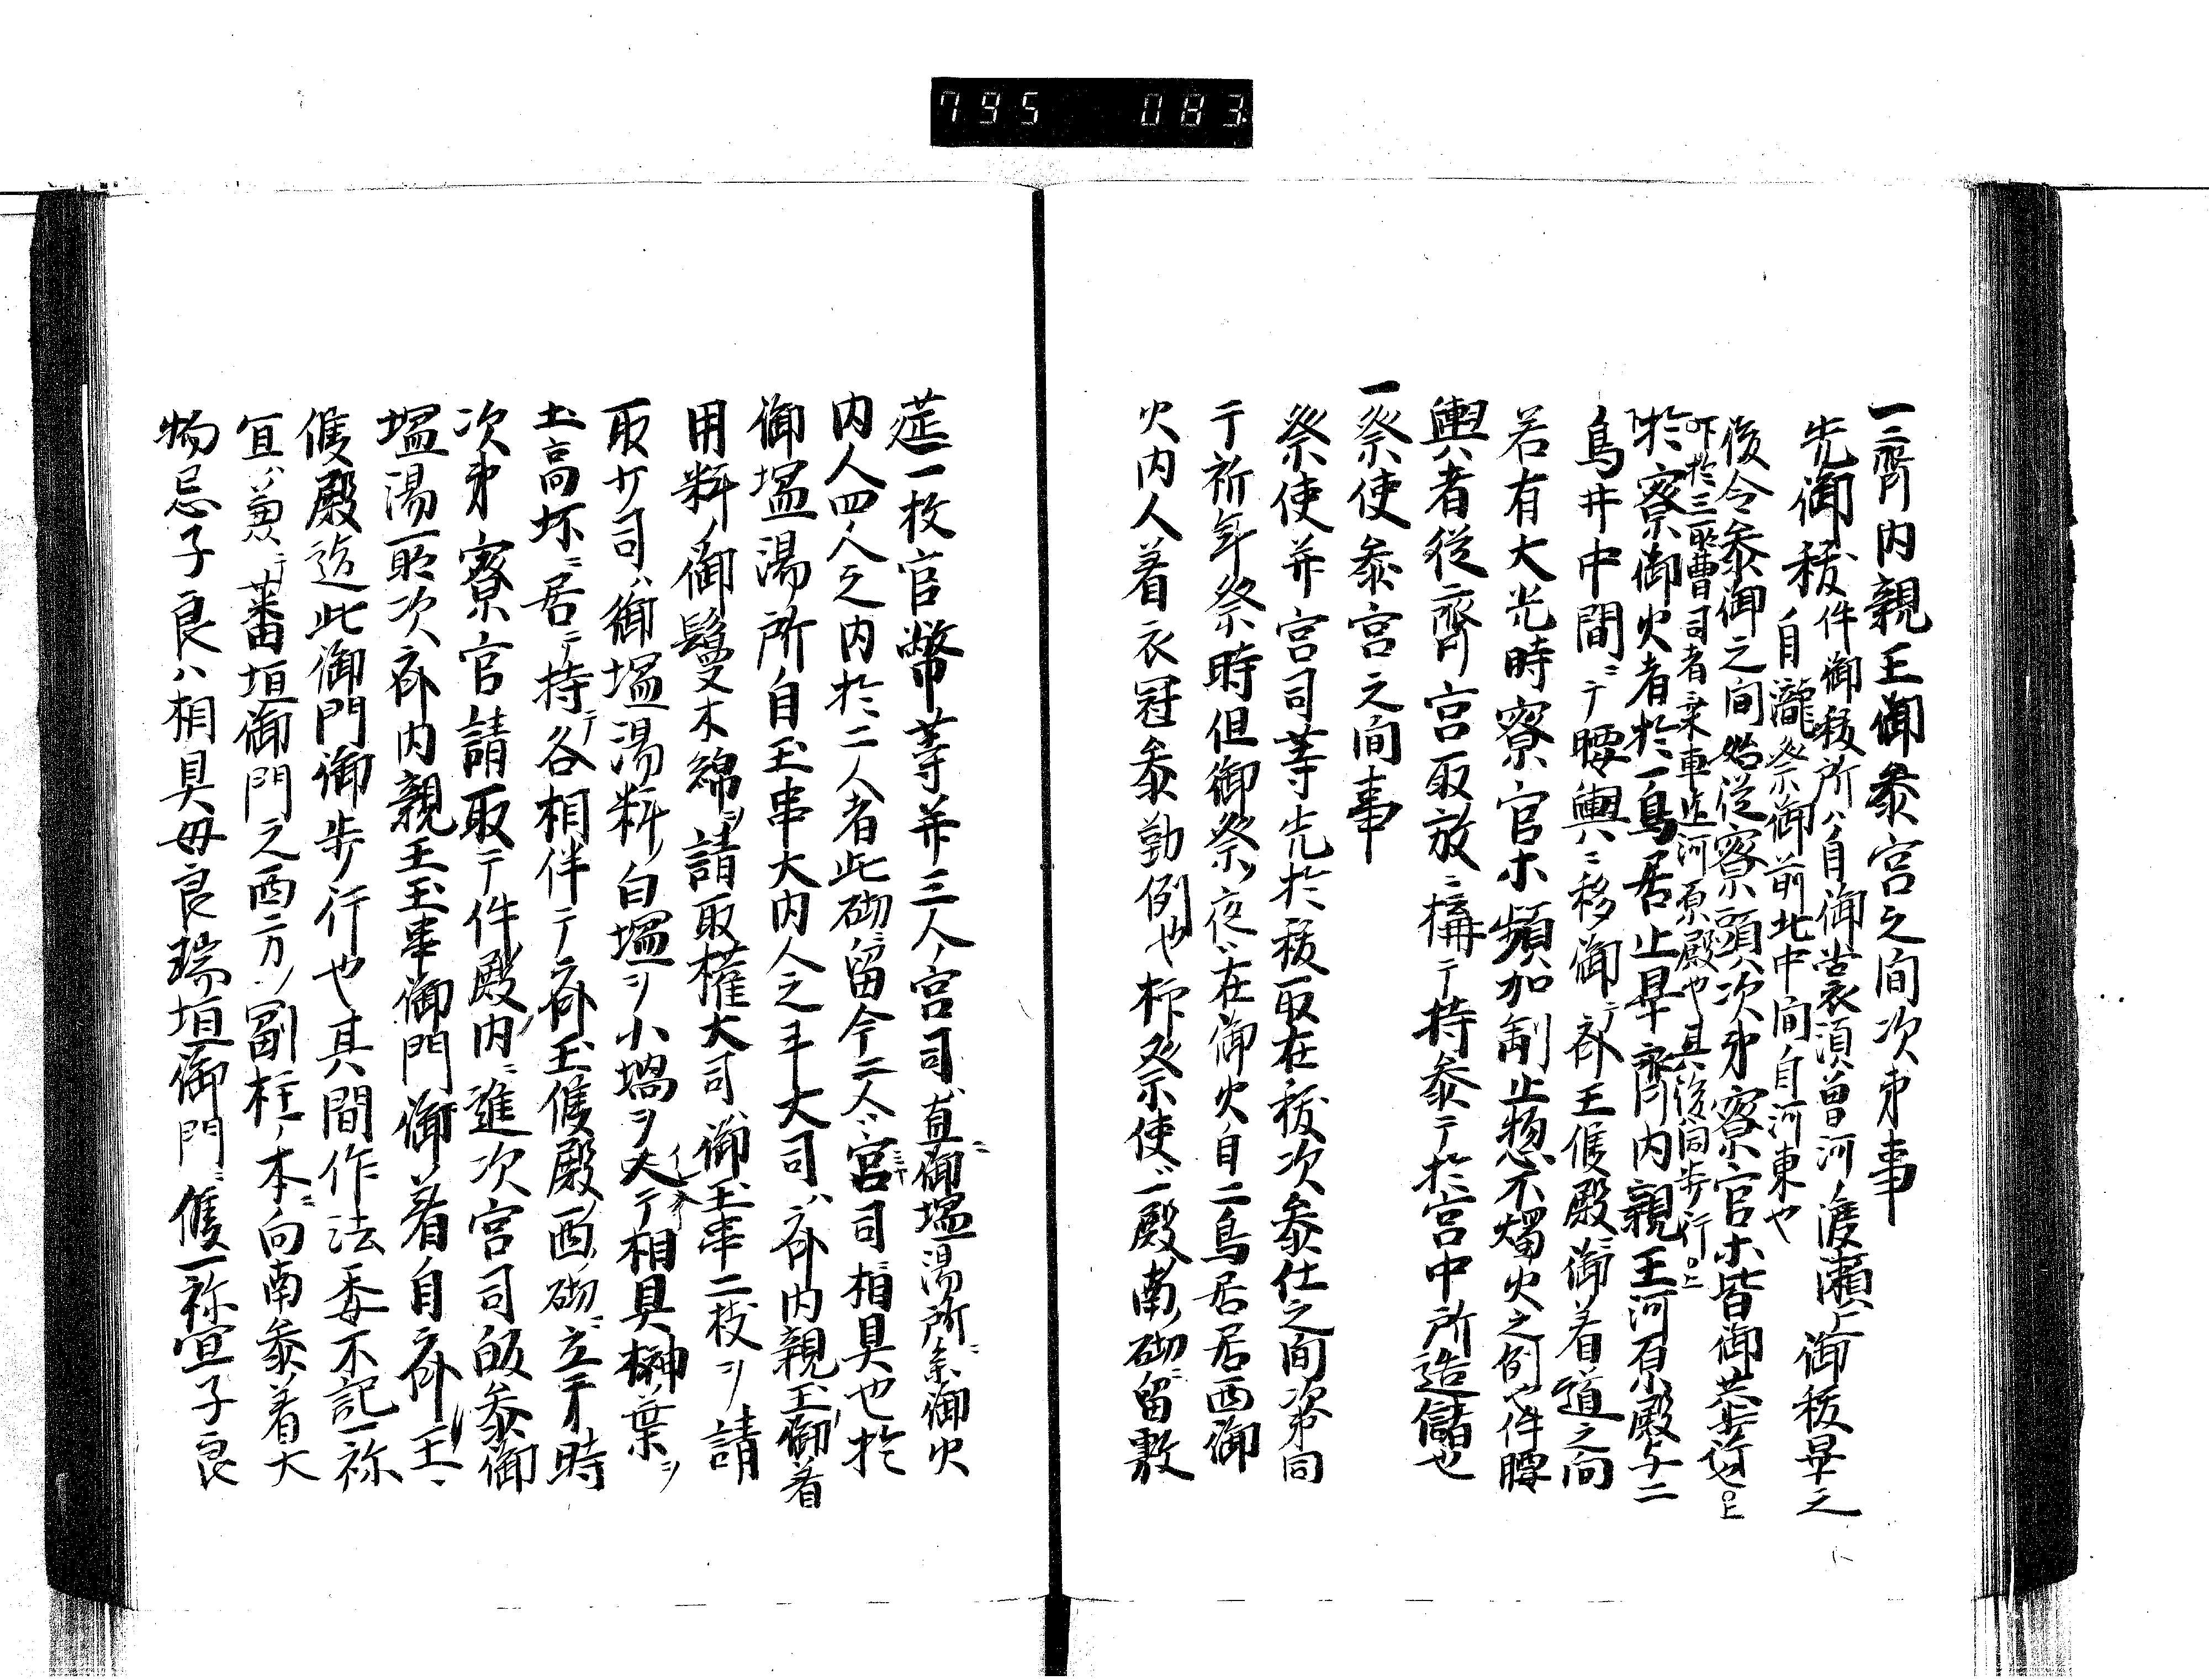 795 083
一齊内親王御參宮之間次第事
先御秡件御秡所ハ自御裳濱曽河ノ渡瀬上御秡畢之
自瀧祭御前北中間自河東也
後令參御之間始従寮頭次第寮官ホ皆御共步行也
下於三所曹司者乗車迄河原殿也其後同步行
於寮御火者於一鳥居止畢齊内親王河原殿与二
鳥井中間ニテ腰輿ニ移御テ齋王候殿ニ御着道之向
若有大光時寮官ホ頻加制止惣不燭火之例也件腰
輿者従齊宮取放ニ構テ持參テ於宮中所造儲也
一祭使參宮之間事
祭使并宮司等先於秡所在秡次參仕之間次第同
于祈年祭時但御祭夜ハ在御火自二鳥居居西御
火内人着衣冠參勤例也抑祭使ハ一殿南砌ニ留敷
莚一枚官幣等并三人ノ宮司ハ直御塩湯所ニ參御火
内人四人之内於二人者此砌ニ留今二人ハ宮司ニ相具也於
御塩湯所自玉串大内人之手大司ハ齋内親王御着
用料ノ御鬘木綿ヲ請取權大司ハ御玉串二枝ヲ請
取少司ハ御塩湯料ノ白塩ヲ小堝ヲ入テ相具榊葉ヲ
土高坏ニ居テ持テ各相伴テ齋王候殿ノ西ノ砌ニ立于時
次第寮官請取テ件殿内ニ進次宮司皈參御
塩湯所次齋内親王玉串御門御着自齋王
候殿迄此御門御步行也其間作法委不記一祢
宜ハ兼テ蕃垣御門之西方ノ副柱ノ本ニ向南參着大
物忌子良ハ相具母良瑞垣御門ニ候一祢宜子良